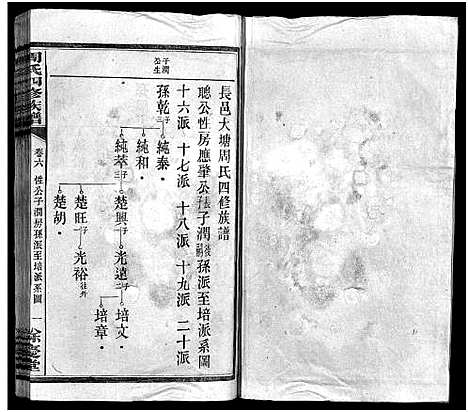 長邑大塘周氏四修族譜
聰公性房應肇公長子潤後孫派至培派系圖
十六派　十七派　十八派　十九派　二十派
子潤公生
孫乾子三
純泰
純和
純萃子三
楚興子一
光遠子二
培文
培章
楚旺子一
光裕往外
楚胡
周氏四修族譜
卷六　性公子潤房孫派至培派系圖　一